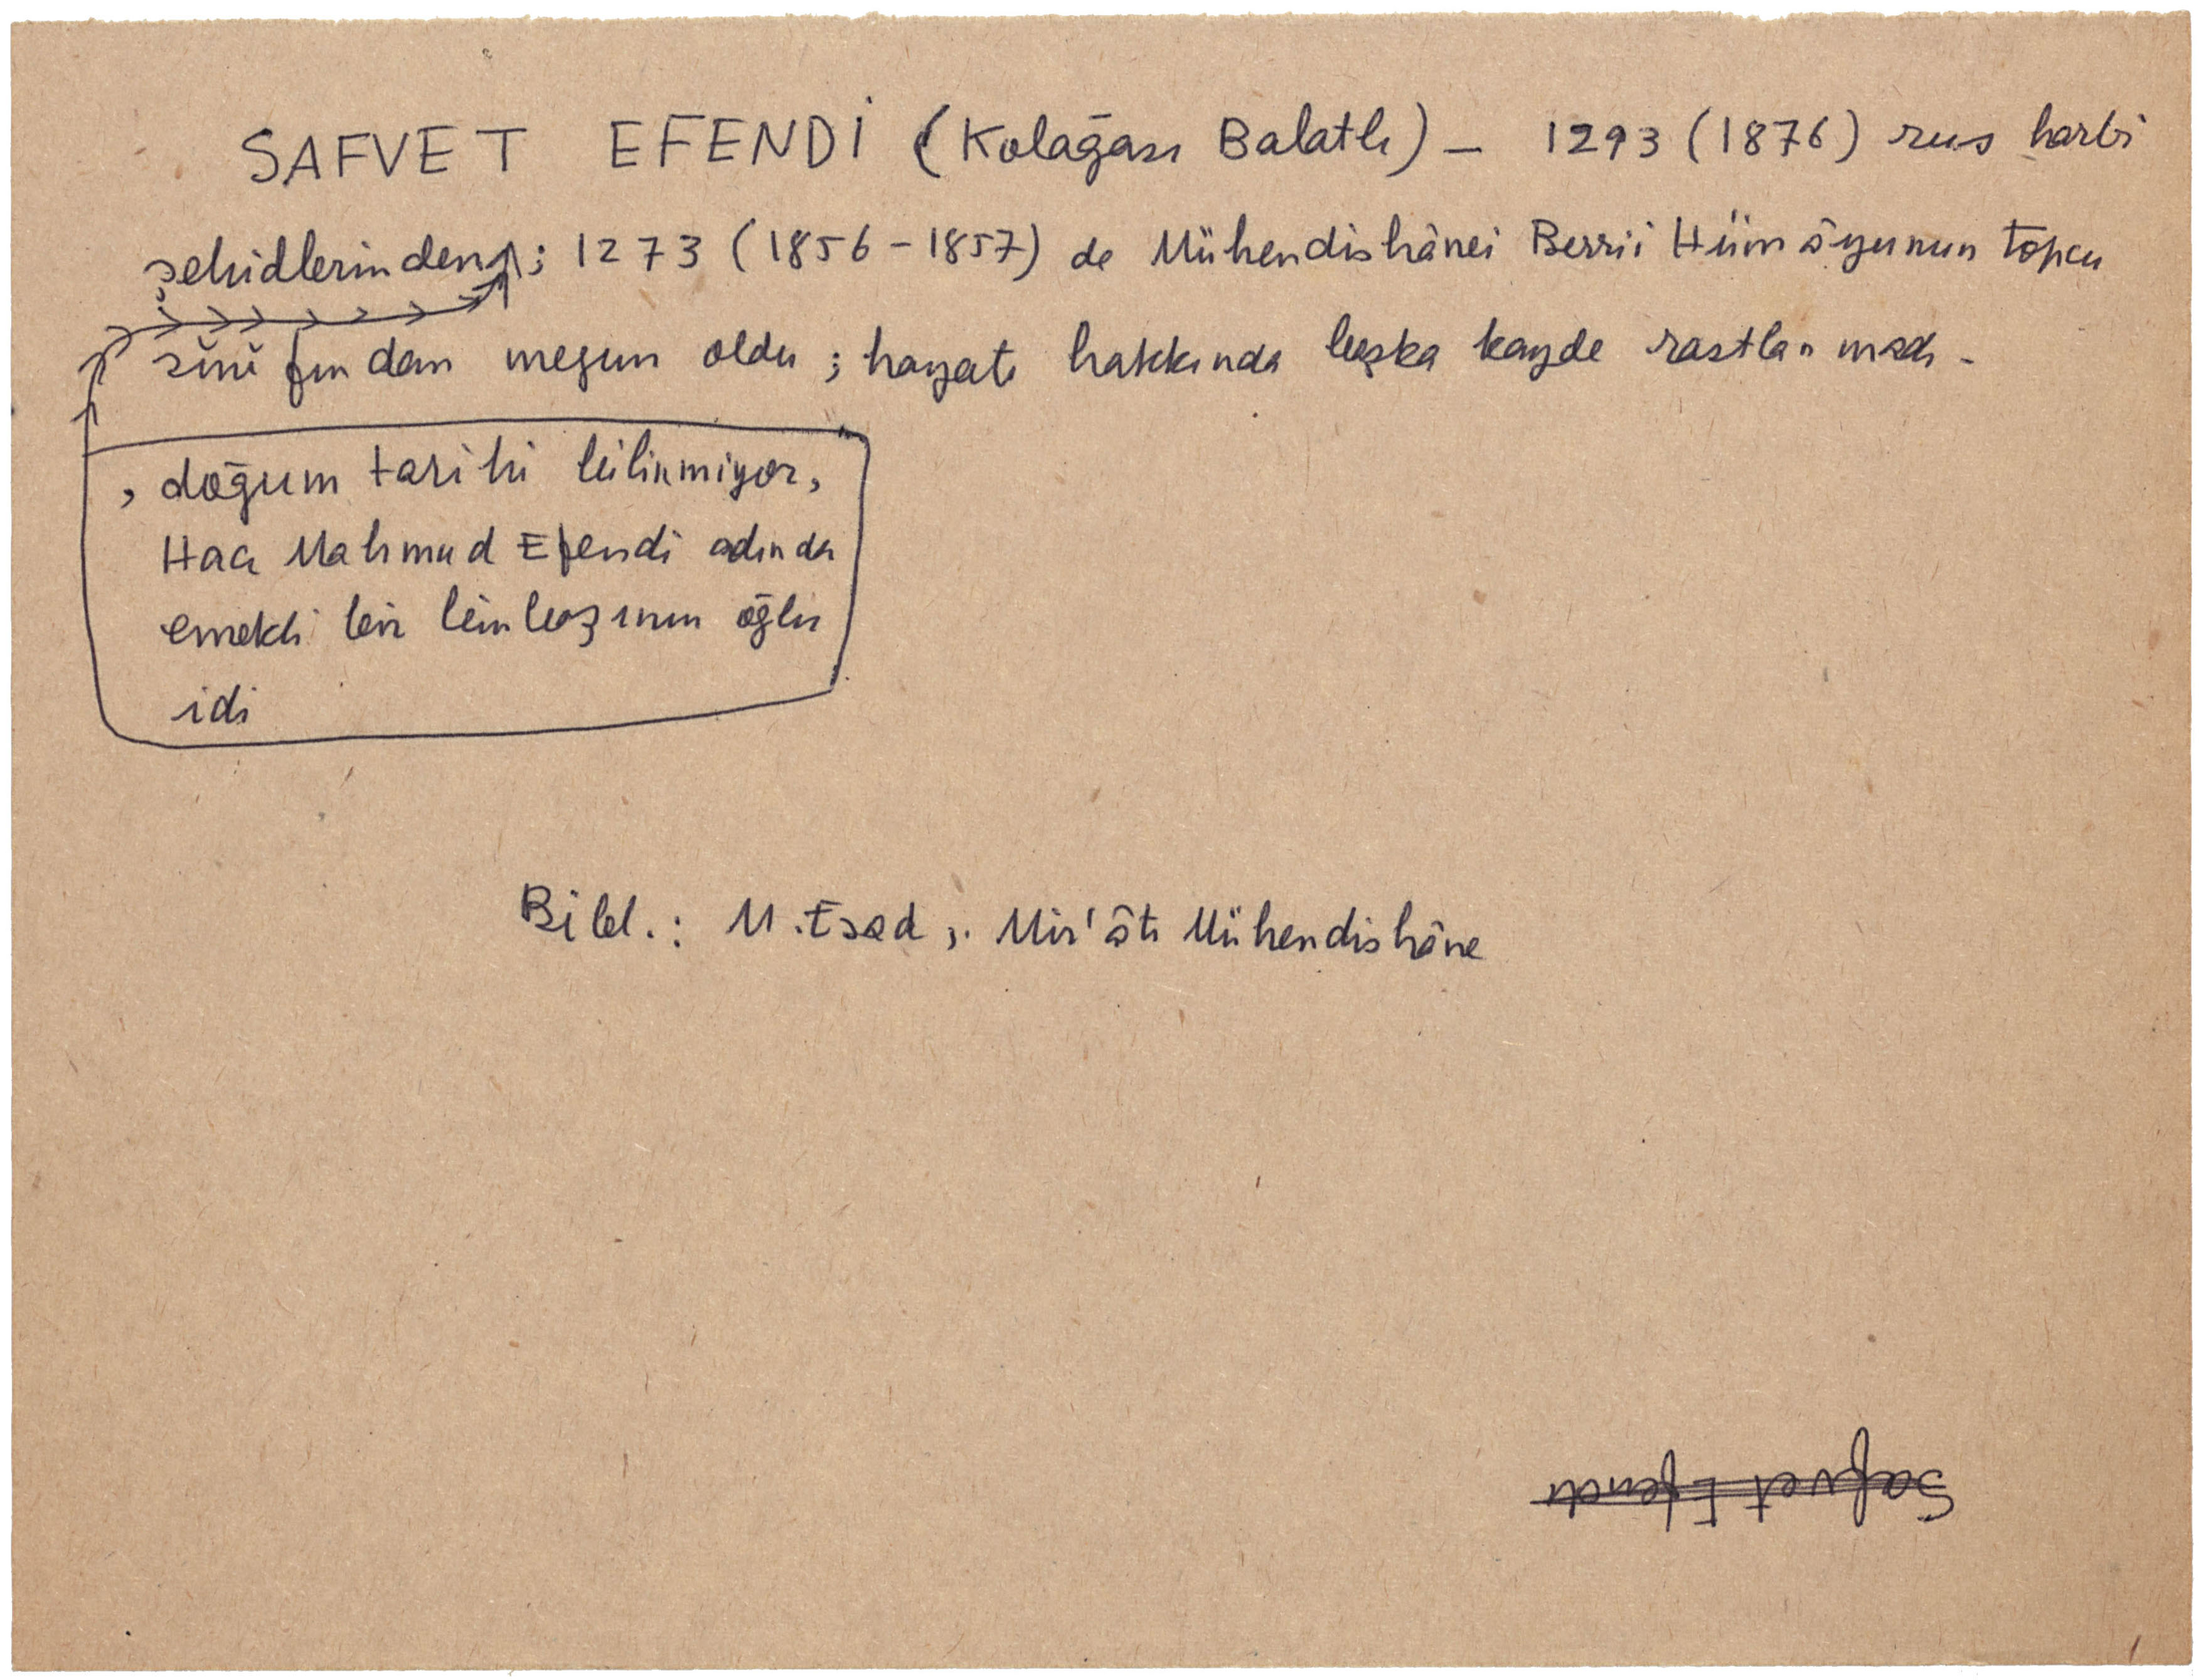 SAFVET EFENDİ (Kolağası Balatlı) — 1293 (1876) rus harbi
şehidlerinden; 1273 (1856-1857) de Mühendishânei Berrii Hümâyunun topcu
sınıfından mezun oldu; hayatı hakkında başka kayde rastlanmadı.
, doğum tarihi bilinmiyor,
Hacı Mahmud Efendi adında
emekli bir binbaşının oğlu
idi
Bibl.: M. Esad, Mir'âtı Mühendishâne
Safvet Efendi